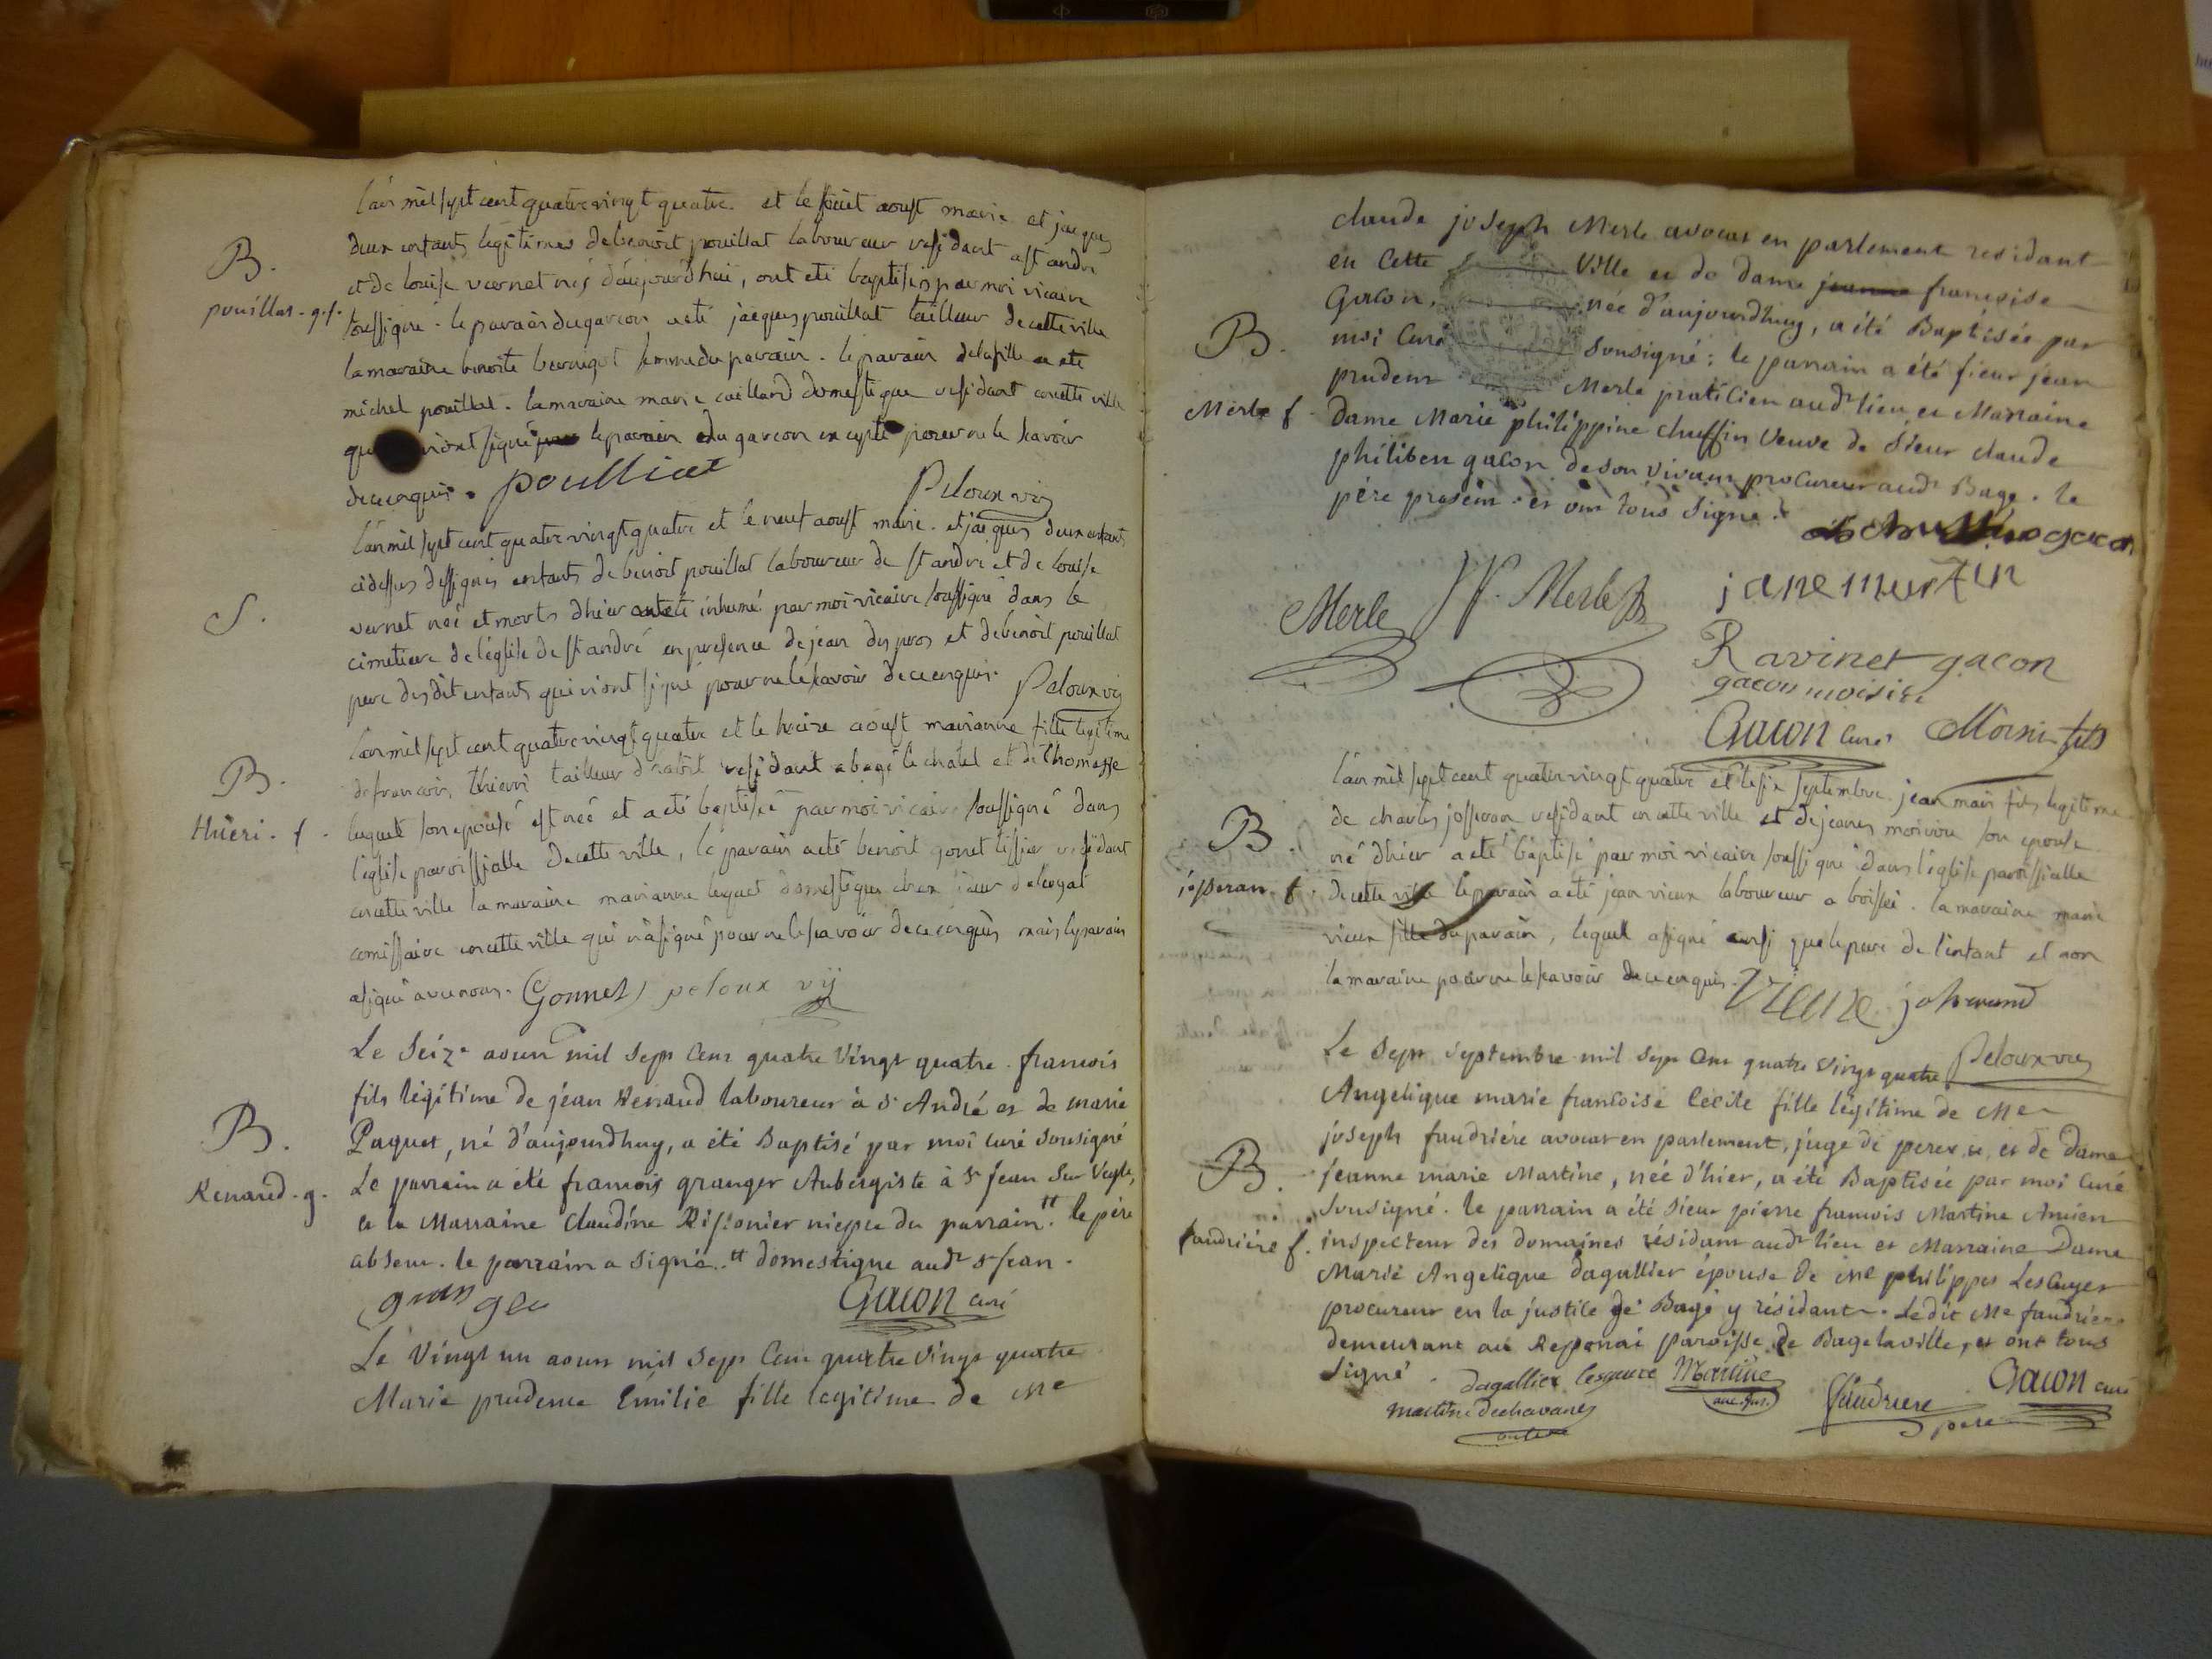 l'an mil sept cent quatre vingt quatre et le huit aoust marie et jacques
B.
deux enfants legitimes de benoit pouillat laboureur residant a st andré
et de louise vernet nés d'aujourd'hui, ont eté baptisés par moi vicaire
pouillat. g. f.
soussigné. le parain du garcon a eté jacques pouillat tailleur de cette ville
la maraine benoite femme du parain. le parain de la fille a eté
michel pouillat. la maraine marie caillard domestique residant en cette ville
qui n'ont signé le parain du garcon excepté pour ne le scavoir
de ce enquis. poulliat
Peloux vic
l'an mil sept cent quatre vingt quatre et le neuf aoust marie et jacques deux enfants
cidessus dessignés enfants de benoit pouillat laboureur de st andré et de louise
S.
vernet né et morts d'hier ont eté inhumé par moi vicaire soussigné dans le
cimetiere de l'église de st andré en presence de jean des pros et de benoit pouillat
pere des dit enfants qui n'ont signé pour ne le scavoir de ce enquis.
Peloux vic
l'an mil sept cent quatre vingt quatre et le treize aoust marianne fille legitime
B.
de francois thieri tailleur d'habit residant a bagé le chatel et de thomasse
thieri. f.
luquet son epouse est née et a eté baptisée par moi vicaire soussigné dans
l'église paroissialle de cette ville, le parain a eté benoit gonet tissier residant
en cette ville la maraine marianne luquet domestique chez sieur
comissaire en cette ville qui n'a signé pour ne le scavoir de ce enquis mais le parain
a signé avec nous. Gonnet peloux vic
Le seize aoust mil sept cent quatre vingt quatre. francois
fils légitime de jéan Renaud laboureur à st André et de marie
B.
Paquet, né d'aujourdhuy, a été Baptisé par moi curé sousigné
Renaud. g.
Le parrain a été francois granger Aubergiste à st jean sur Veyle,
et la Marraine Claudine niepce du parrain tt. le père
absent. le parrain a signé. tt domestique audt st jean.
granger
Gacon curé
Le Vingt un aoust mil sept cent quatre Vingt quatre
Marie prudence Emilie fille legitime de Me
claude joseph Merle avocat en parlement residant
en Cette Ville et de dame jeanne francoise
Gacon, née d'aujourdhuy, a été Baptisée par
B.
moi Curé sousigné; le parrain a été sieur jean
prudent Merle praticien audt lieu et Marraine
Merle f.
Dame Marie philippine chuffin Veuve de Sieur claude
philibert gacon de son vivant procureur audt Bagé. le
père present et ont tous signé.
gacon
Merle
Merle
Ravinet gacon
gacon
Gacon curé
fils
l'an mil sept cent quatre vingt quatre et le six septembre. jean fils legitime
de charles josseran residant en cette ville et de son epouse
B.
né d'hier a eté baptisé par moi vicaire soussigné dans l'église paroissialle
josseran. f.
de cette ville le parain a eté jean vieux laboureur a boissei. la maraine marie
vieux fille du parain, lequel a signé ainsi que le pere de l'enfant et non
la maraine pour ne le scavoir de ce enquis. Vieux
Peloux vic
Le Sept Septembre mil sept Cent quatre Vingt quatre
Angelique marie francoise Cecile fille légitime de Me
joseph faudriére avocat en parlement, juge de perex et de Dame
B.
jeanne marie Martine, née d'hier, a été Baptisée par moi Curé
sousigné. le parrain a été Sieur pierre francois Martine Ancien
faudriére f.
inspecteur des domaines résidant audt lieu et Marraine Dame
Marie Angelique dagallier épouse de Me philippes Lescuyer
procureur en la justice de Bagé y résidant. Ledit Me faudriere
demeurant au Reponai paroisse de Bagé la ville, et ont tous
signé.
dagallier Martine
martine dechavanes
faudriere
pere
Gacon curé